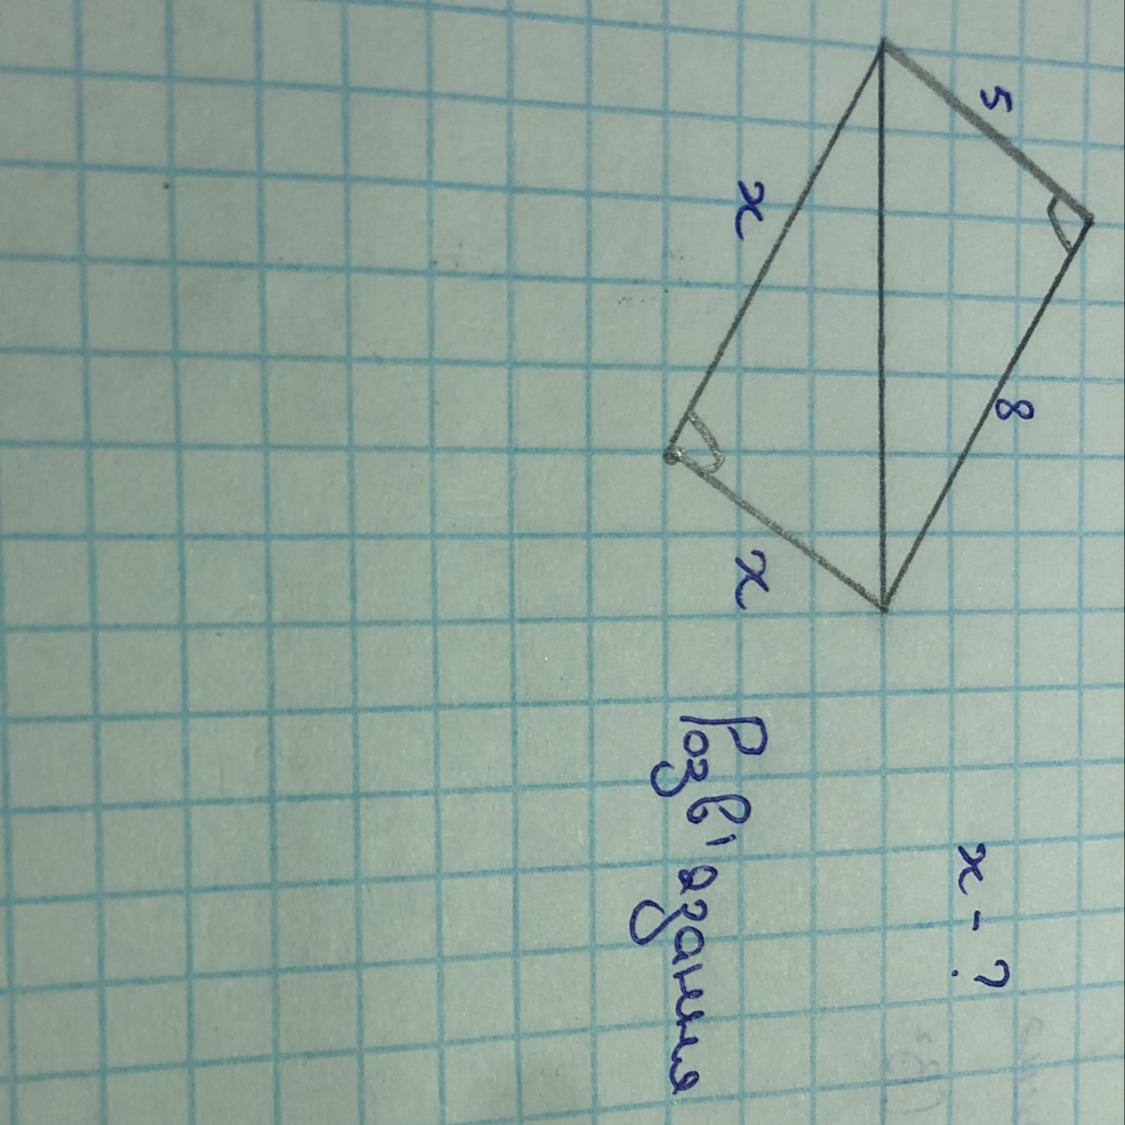 5
8
x
x
x - ?
Розв'язання